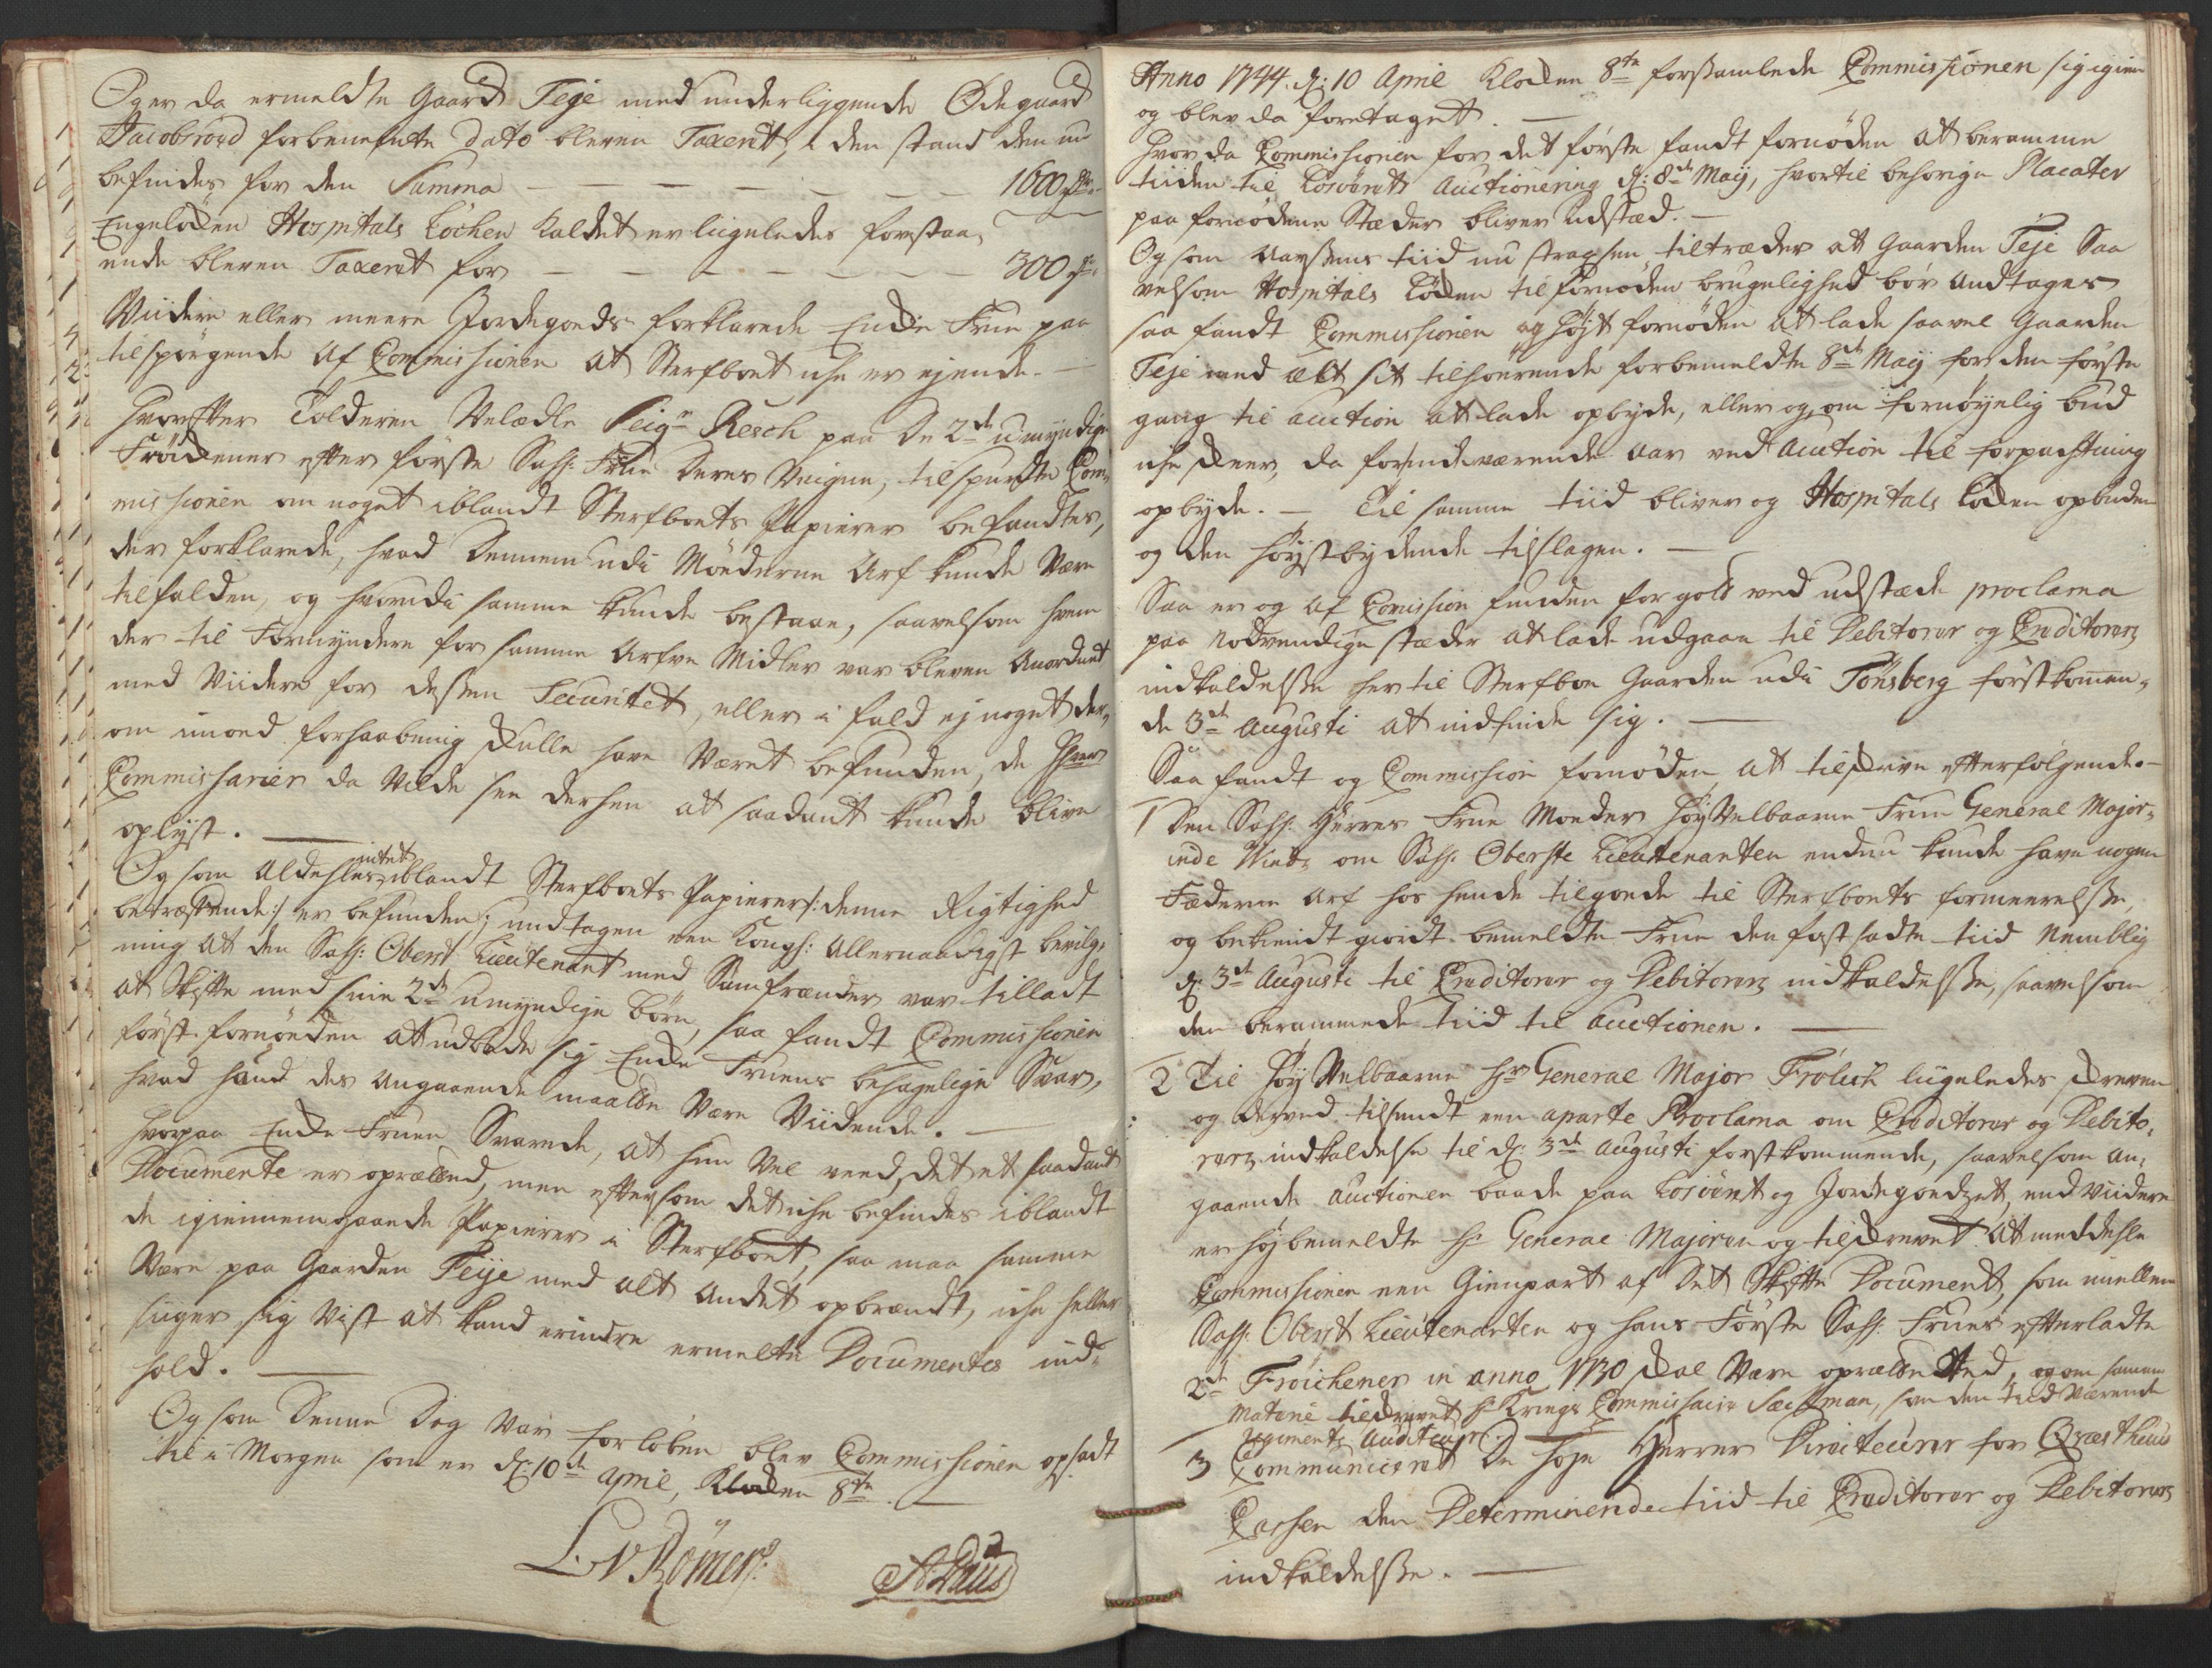 Og er da ermeldte Gaard Teje med underliggende Ødegaard
Jacobsrød forbenefnte dato bleven Taxerit, i den stand den nu
befindes for den Summa — — — — — — 1600 rdr
Engeløkken Hospitals Løchen kaldet er lugeledes forstaa-
ende bleven Taxerit for — — — — — — 300 rdr
Widere eller meere Jordegods forklarede Encke Frue paa
tilspørgende af Commissionen at Sterfboet iche er ejende. —
Hvorefter Tolderen Velædle Seigr Resch paa De 2de umyndige
Frøickener efter første Sahl: Frue deres Vegne, tilspurdte Com-
missionen om noget iblandt Sterfboets Papierer befandtes,
der forklarede, hvad dennem udi Møderne Arf kunde være
tilfalden, og hvorudi samme kunde bestaae, saavelsom hvem
der til Formyndere for samme Arfve Midler var bleven Anordnet
med Viidere for dessen Securitet, eller i fald ej noget der-
om imod forhaabning skulle have været befunden, de Hrer
Commissarier da vilde see dersen at saadant kunde blive
oplyst. —
Og som aldeles intet iblandt Sterfboets Papierer /: denne Rigtighed
betræffende :/ er befunden; undtagen een Kongl: Allernaadigst bevilg-
ning at den Sahl: Oberst Lieutenant med Samfrænder var tilladt
at Skifte med sine 2de umyndige børn, saa fandt Commissionen
først fornøden at udbede sig Encke Fruens behagelige Svar,
hvad hund des angaaende maatte være Viidende. —
Hvorpaa Encke Fruen Svarede, at hun Vel veed, det et saadant
Documente er oprættend, men eftersom det iche befindes iblandt
de igiennemgaaende Papierer i Sterfboet, saa maa samme
være paa Gaarden Teije med alt andet opbrændt, iche heller
siiger sig Vist at kand erindre ermelte Documentes ind-
hold. —
Og som denne Dag var forløben blev Commissionen opsadt
til i Morgen som er d: 10de April, Klocken 8te. —
L v Römer
A Paus
Anno 1744. d: 10 April Klocken 8te forsamlede Commissionen sig igien
og blev da foretaget. —
Hvor da Commissionen for det første fandt fornøden at beramme
tiiden til Løsørets Auctionering d: 8de Maij, hvortil behørige Placater
paa fornødene Stæder bliver udstæd. —
Og som Aarsens tiid nu straxsen tiltræder at Gaarden Teje Saa
velsom Hospitals Løcken til fornøden brugelighed bør andtages
saa fandt Commissionen og Høyst fornøden at lade saavel Gaarden
Teje med alt sit tilhørende forbemeldte 8de Maij for den første
gang til auction at lade opbyde, eller og om fornøyelig bud
iche skeer, da for indeværende aar ved auction til forpachtning
opbyde. — Til samme tiid bliver og Hospitals Løcken opbuden
og den høystbydende tilslagen. —
Saa er og af Comission funden for godt ved udstæde proclama
paa nødvendige stæder at lade udgaae til Debitorer og Creditorers
indkaldelse her til Sterfboe Gaarden udi Tønsberg førstkommen-
de 3de Augusti at indfinde sig. —
Saa fandt og Commission fornøden at tilskrive efterfølgende. —
1 Den Sahl: Herres Frue Moder Høy Velbaarne Frue General Major-
inde om Sahl: Oberste Lieutenanten endnu kunde have nogen
Fæderne Arf hos hende tilgode til Sterfboets formeerelse,
og bekiendt giordt bemeldte Frue den fastsadte tiid Nemblig
d: 3de Augusti til Creditorer og Debitorers indkaldelse, saavelsom
den berammede tiid til Auctionen. —
2 Til Høy Velbaarne Hr General Major Frølich lugeledes skreven
og derved tilsendt een aparte Proclama om Creditorer og Debito-
rers indkaldelse til d: 3de Augusti førstkommende, saavelsom an-
gaaende auctionen baade paa Løsøret og Jordegodzet, end Viidere
er høybemeldte Hr General Majoren og tilskrevet at meddehle
Commissionen een Gienpart af det Skifte Document, som imellem
Sahl: Oberst Lieutenanten og hans Første Sahl: Frues efterladte
2de Frøichener in anno 1730 skal være oprættet, og om samme
Materie tilskrevet Hr Krigs Commissair, som den tiid værende
Regiments Auditeur.
3 Communicerit De høje Herrer Directeurer for Qvæsthuus
Cassen den Determinerede tiid til Creditorer og Debitorers
indkaldelse. —